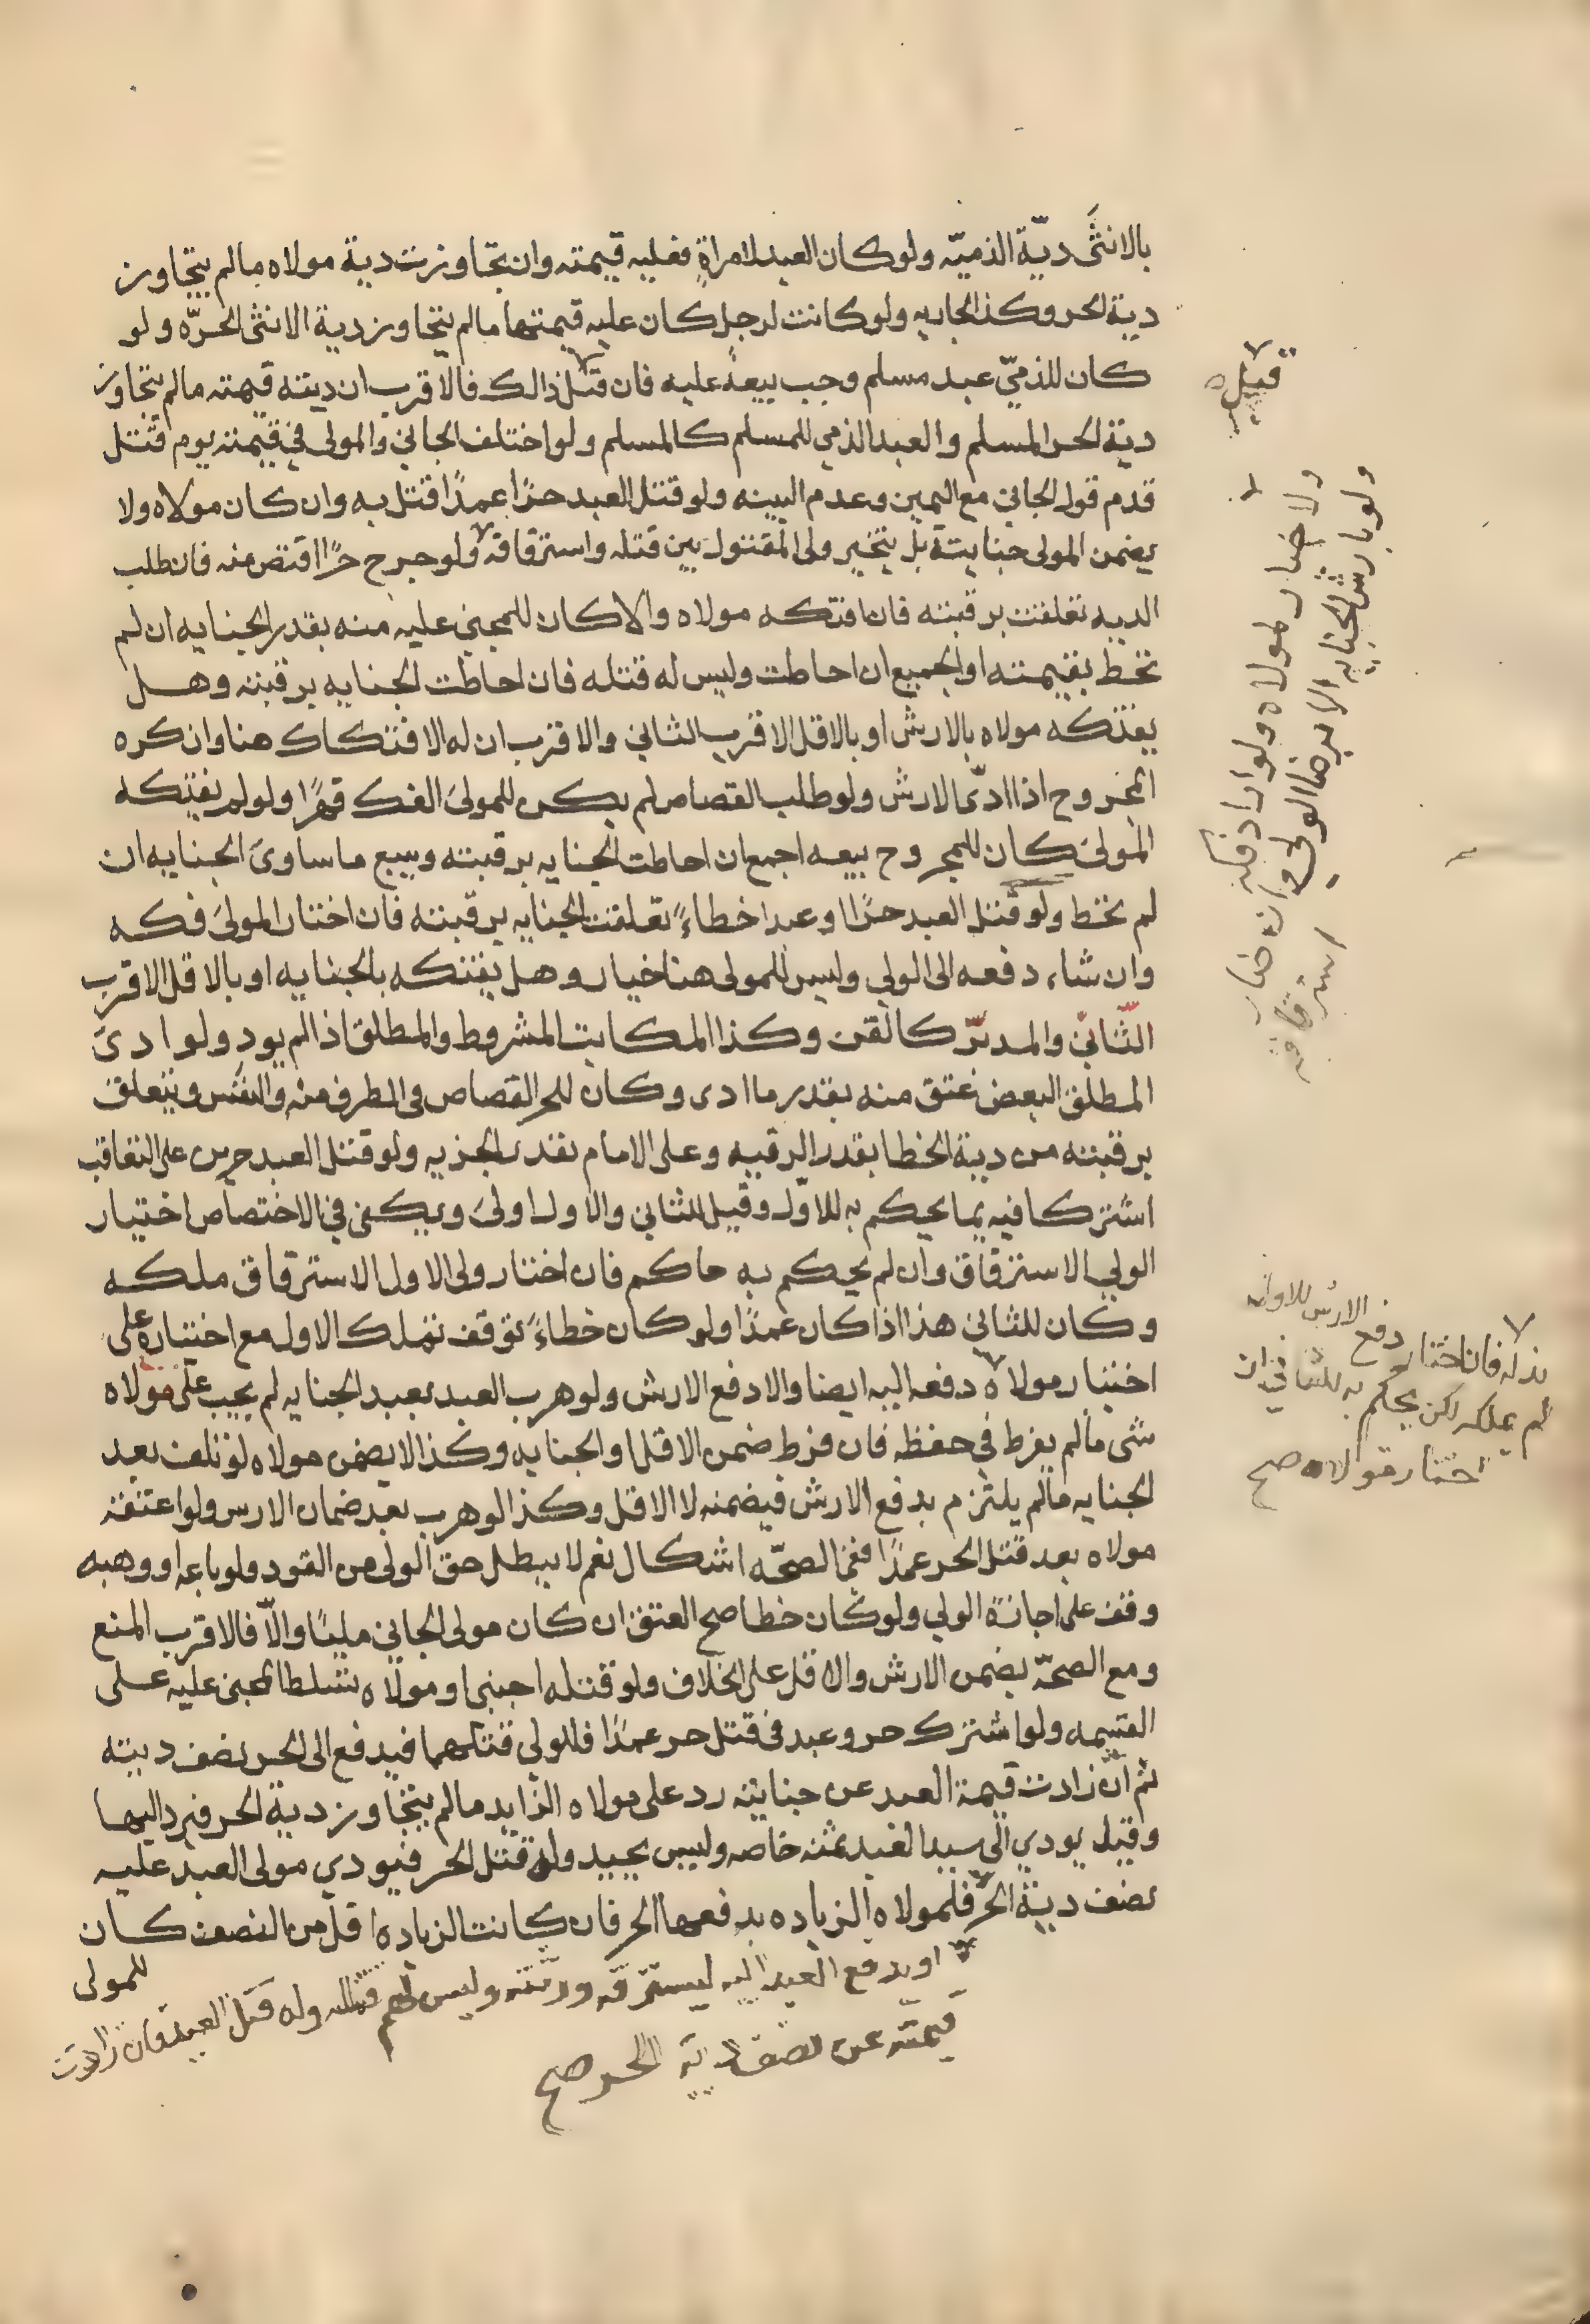 بالانثى ديّة الذميّه ولو كان العبد لامراةٍ فعليه قيمته وان تجاوزت دية مولاه مالم يتجاوز
دية الحر وكذا الجاريه ولو كانت لرجل كان عليه قيمتها مالم يتجاوز دية الانثى الحرّه ولو
كان للذميّ عبد مسلم وجب بيعه عليه فان قتل ذالك فالاقرب ان ديته قيمته مالم يتجاوز
دية الحر المسلم والعبد الذمي للمسلم كالمسلم ولو اختلف الجاني والمولى في قيمته يوم قتل
قدم قول الجاني مع اليمين وعدم البينه ولو قتل العبد حرًا عمدًا قتل به وان كان مولاه ولا
يضمن المولى جنايته بل يتخير ولى المقتول بين قتله واسترقاقه ولو جرح حرًا اقتص منه فان طلب
الديه تعلقت برقبته فان افتكه مولاه والا كان للمجني عليه منه بقدر الجنايه ان لم
تحط بقيمته او الجميع ان احاطت وليس له قتله فان احاطت الجنايه برقبته وهل
يفتكه مولاه بالارش او بالاقل الاقرب الثاني والاقرب ان له الافتكاك هنا وان كره
المجروح اذا ادّى الارش ولو طلب القصاص لم يكن للمولى الفك قهرًا ولو لم يفتكه
المولى كان للمجروح بيعه اجمع ان احاطت الجنايه برقبته وبيع ما ساوى الجنايه ان
لم تحط ولو قتل العبد حرًا او عبدا خطاءً تعلقت الجنايه برقبته فان اختار المولى فكه
وان شاء دفعه الى الولي وليس للمولى هنا خيار وهل يفتكه بالجنايه او بالاقل الاقرب
الثّاني والمدبّر كالقن وكذا المكاتب المشروط والمطلق اذا لم يود ولو ادى
المطلق البعض عتق منه بقدر ما ادى وكان للحر القصاص فى الطرف منه والنفس ويتعلق
برقبته من دية الخطا بقدر الرقيه وعلى الامام بقدر الحريه ولو قتل العبد حرين على التعاقب
اشتركا فيه مالم يحكم به للاوّل وقيل للثاني والاول اولى ويكفى في الاختصاص اختيار
الولي الاسترقاق وان لم يحكم به حاكم فان اختار ولى الاول الاسترقاق ملكه
وكان للثاني هذا اذا كان عمدًا ولو كان خطاءً توقف تملك الاول مع اختياره على
اختيار مولاه دفعه اليه ايضا والا دفع الارش ولو هرب العبد بعد الجنايه لم يجب على مولاه
شى مالم يفرط في حفظه فان فرط ضمن الاقل او الجنايه وكذا لا يضمن مولاه لو تلف بعد
الجنايه مالم يلتزم بدفع الارش فيضمنه لا الاقل وكذا لو هرب بعد ضمان الارس ولو اعتقه
مولاه بعد قتل الحر عمدًا ففى الصحّه اشكال نعم لا يبطل حق الولى من القود ولو باعه او وهبه
وقف على اجازة الولي ولو كان خطا صح العتق ان كان مولى الجاني مليًا والّا فالاقرب المنع
ومع الصحّة يضمن الارش والاقل على الخلاف ولو قتله اجنبى او مولاه تسلط المجنى عليه على
القيمه ولو اشترك حر وعبد فى قتل حر عمدًا فللولي قتلهما فيدفع الى الحر نصف ديته
ثم ان زادت قيمة العبد عن جنايته رد على مولاه الزايد مالم يتجاوز دية الحر فيرد اليها
وقيل يودي الى سيد العبد ثمنه خاصه وليس بجيد وله قتل الحر فيودي مولى العبد عليه
نصف دية الحر فلمولاه الزياده يدفعها الحر فان كانت الزياده اقل من النصف كان
للمولى
او يدفع العبد اليه ليسترقه ورثته وليس لهم قتله وله قتل العبد فان زادت
قيمته عن نصف دية الحر صح
قبل
ولا خيار لمولاه ولو اراد فكه
ولو بارش الجنايه الا برضا الولي وان خيار
استرقاقه
بذله فان اختار دفع الارش للاول
لم يملكه لكن يحكم به للثاني ان
اختار قوله صح